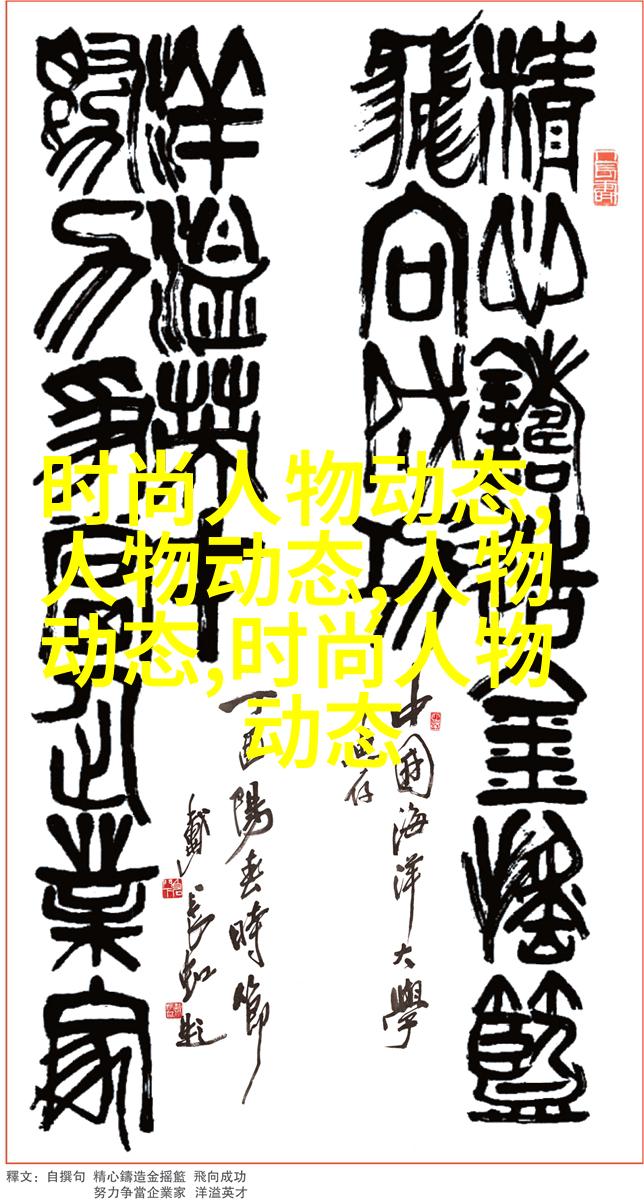 精心鑄造金摇籃
飛向成功
中國海洋大學
存
努力争當企業家
洋溢英才
丁酉陽春時節
戴長虹題
时尚人物动态,
人物动态,人物
动态,时尚人物
动态
釋文：自撰句 精心鑄造金摇籃 飛向成功
努力争當企業家 洋溢英才